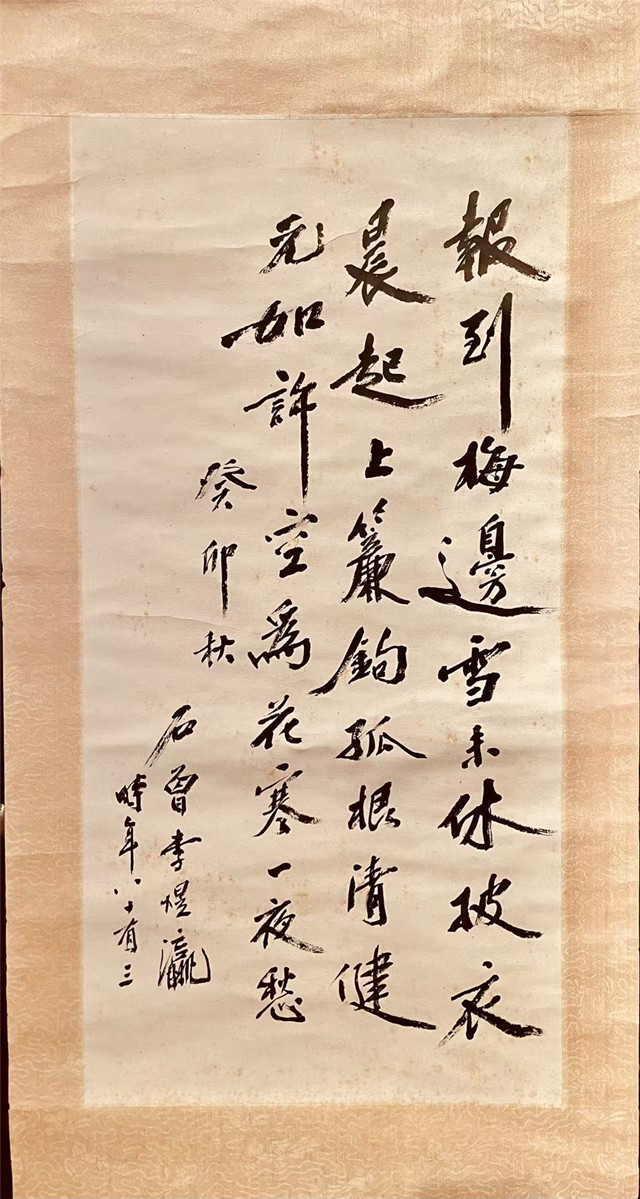 報到梅邊雪未休披衣
晨起上簾鉤孤根清健
元如許空為花寒一夜愁
癸卯秋
石曾李煜瀛
時年八十有三